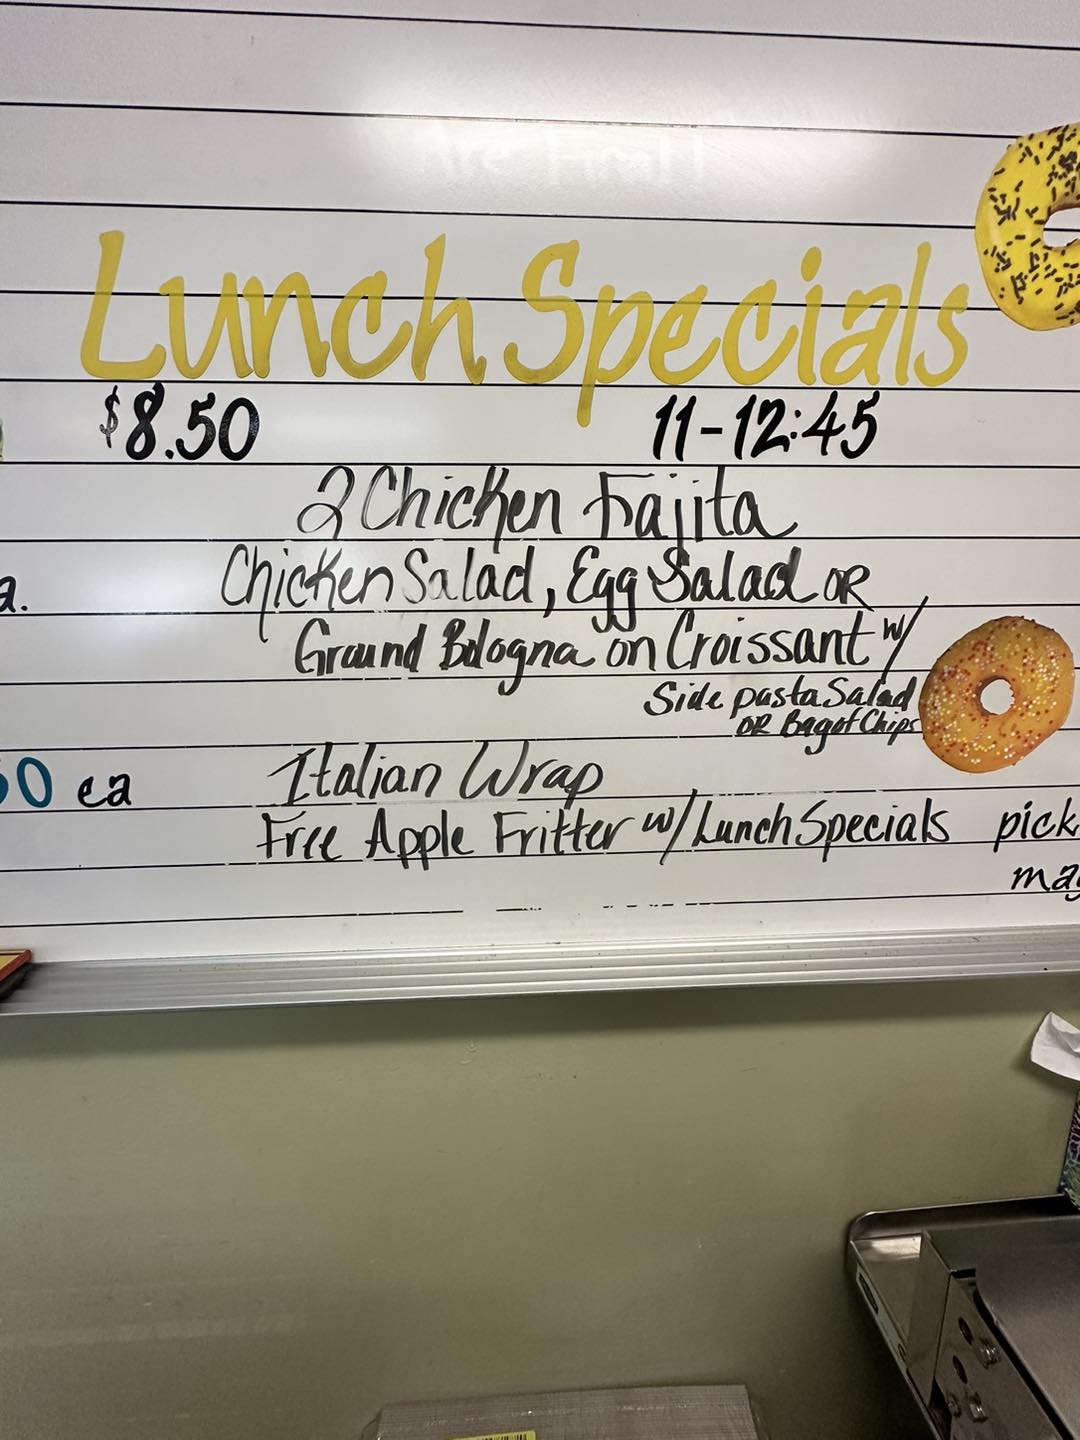 Lunch Specials
$8.50 11-12:45
2 Chicken Fajita
a. Chicken Salad, Egg Salad OR
Ground Bologna on Croissant w/
Side pasta Salad
OR Bag of Chips
0 ea Italian Wrap
Free Apple Fritter w/ Lunch Specials pick
ma